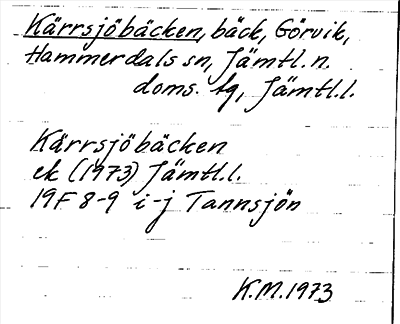 Kärrsjöbäcken, bäck, Görvik,
Hammerdals sn, Jämtl. n.
doms. tg, Jämtl.l.
Kärrsjöbäcken
ek (1973) Jämtl.l.
19F 8-9 i-j Tannsjön
K.M.1973